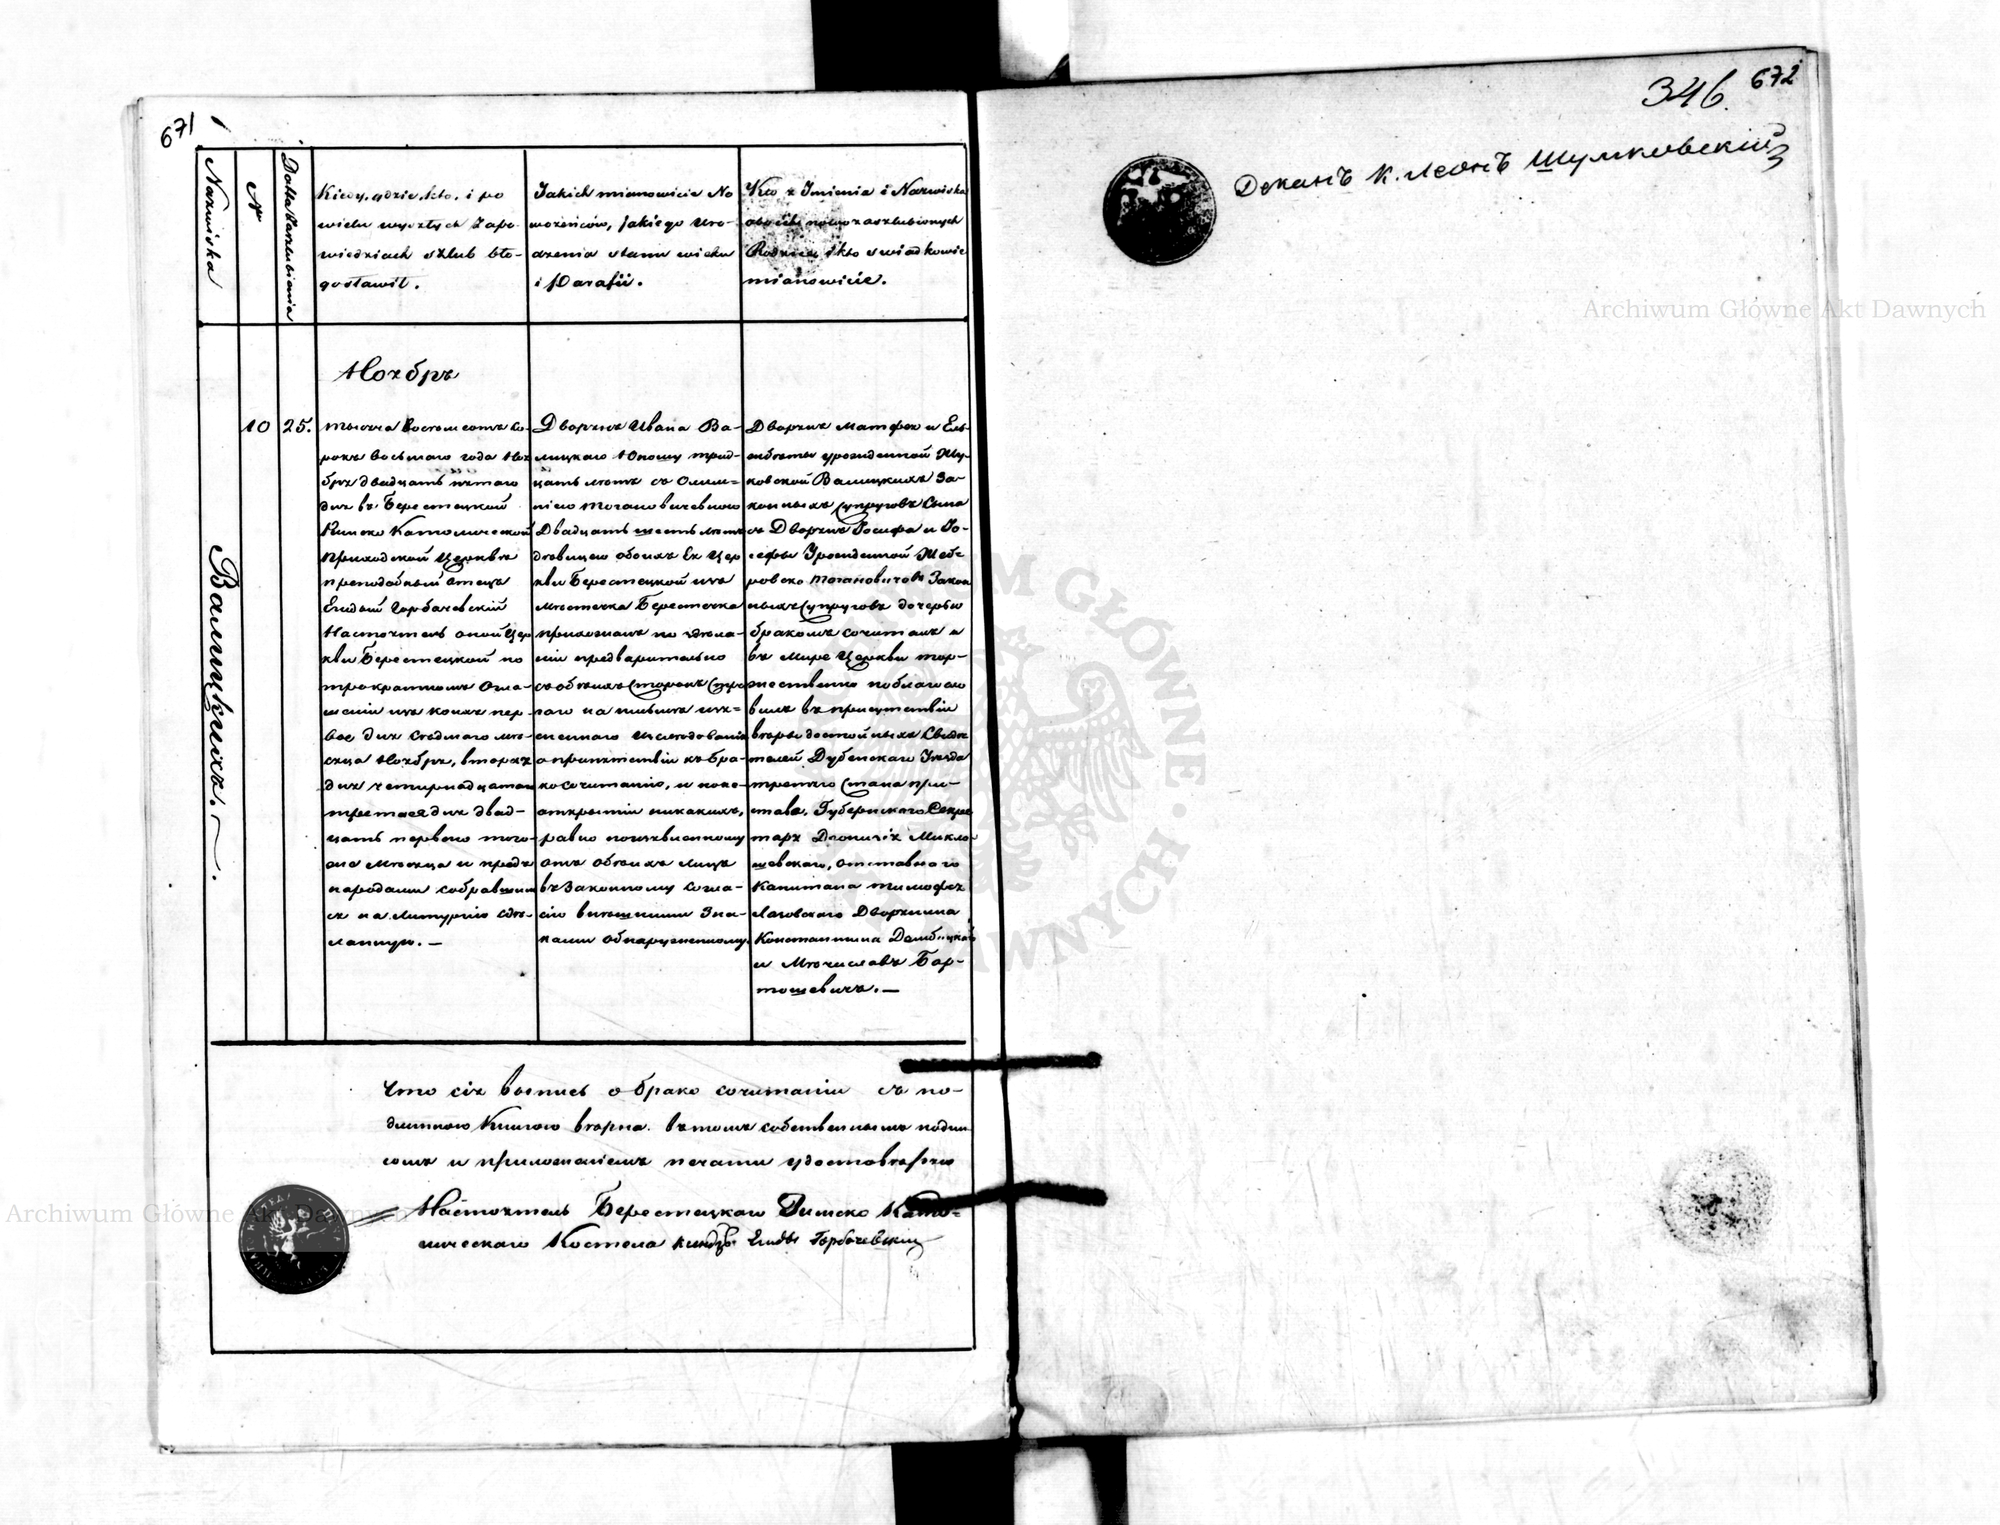 671
Nazwiska
N
Datta Zaszlubienia
Kiedy, gdzie, kto, i po
wielu wyszłych Zapo-
wiedziach szlub bło-
gosławił.
Jakich mianowicie No
wożeńców, jakiego uro-
dzenia stanu wieku
i Parafii.
Kto z Imienia i Nazwiska
obojch nowozaszlubionych
Rodzice i kto świadkowie
mianowicie.
Ноябрь
Валицкихъ.
10
25.
тысяча восемсотъ со-
рокъ восьмаго года Ноя
бря двадцать пятаго
дня въ Берестецкой
Римско Католической
Приходской Церквѣ
преподобный отецъ
Егидій Горбачевскій
Настоятель оной Цер
кви Берестецкой по
трократномъ Огла-
шеніи изъ коихъ пер-
вое дня седмаго мѣ-
сяца Ноября, второе
дня четырнадцатаго
третое дня двад-
цать перваго того-
же мѣсяца и предъ
народами собравшим
ся на Литургію сдѣ-
ланную. —
Дворянъ Ивана Ва-
лицкаго Юношу трид-
цать лѣтъ съ Олим-
піею Тогановичевною
Двадцать шесть лѣтъ
дѣвицею обоихъ Ея Цер
кви Берестецкой изъ
мѣстечка Берестечка
прихожанъ по здѣла-
ніи предварительно
съ обѣихъ Сторонъ Стро
гаго на письмѣ изъ-
еннаго изслѣдованія
о препятствіи къ бра-
косочитанію, и неже-
открытіи никакихъ,
равно по изъявленному
отъ обѣихъ лицъ
въ Законному согла-
сію внѣшними Зна-
ками обнаруженному.
Дворянъ Матфея и Ель-
жбеты урожденной Жу-
ковской Валицкихъ За-
конныхъ Супруговъ Сына
съ Дворянъ Іосифа и Іо-
сефы Урожденной Жеб-
ровско Тогановичовъ Закон
ныхъ Супруговъ дочерью
бракомъ сочиталъ и
въ Мире Церкви тор-
жественно поблагосло
вилъ въ присутствіи
вѣры достойныхъ Свидѣ
телей Дубенскаго Уѣзда
третяго Стана при-
става, Губернскаго Секре
таря Діонизія Микло-
шевскаго, отставнаго
Капитана Тимофея
Лазовскаго Дворянина
Константина Домбицкаго
и Мѣчислава Бар-
тошевичъ. —
Что сія выпись о брако сочитаніи съ по-
длинною Книгою вѣрна. въ томъ собственнымъ подпи
сомъ и приложеніемъ печати удостовѣряю
Настоятель Берестецкаго Римско Като-
лическаго Костела Ксендзъ Егидій Горбачевскій
346.
672
Деканъ К. Леонъ Шумковскій
Archiwum Główne Akt Dawnych
Archiwum Główne Akt Dawnych